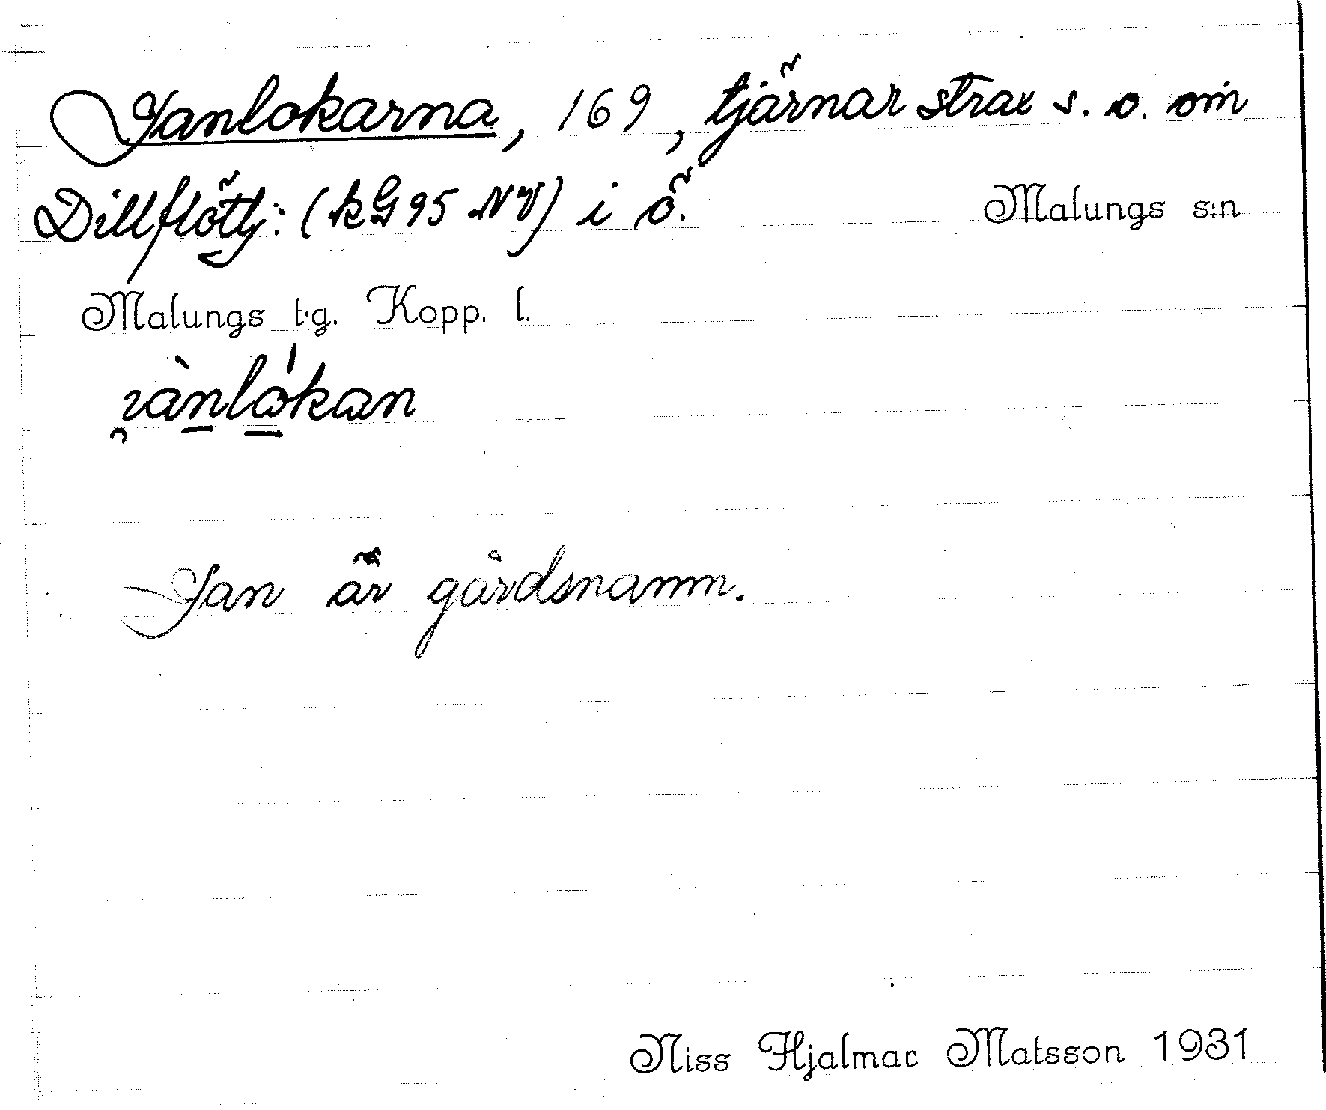 Janlokarna, 169, tjärnar strax s. o. om
Dillflöttj: (kG 95 NV) i ö. Malungs s:n
Malungs t.g. Kopp. l.
Jan är gårdsnamn.
Niss Hjalmar Matsson 1931